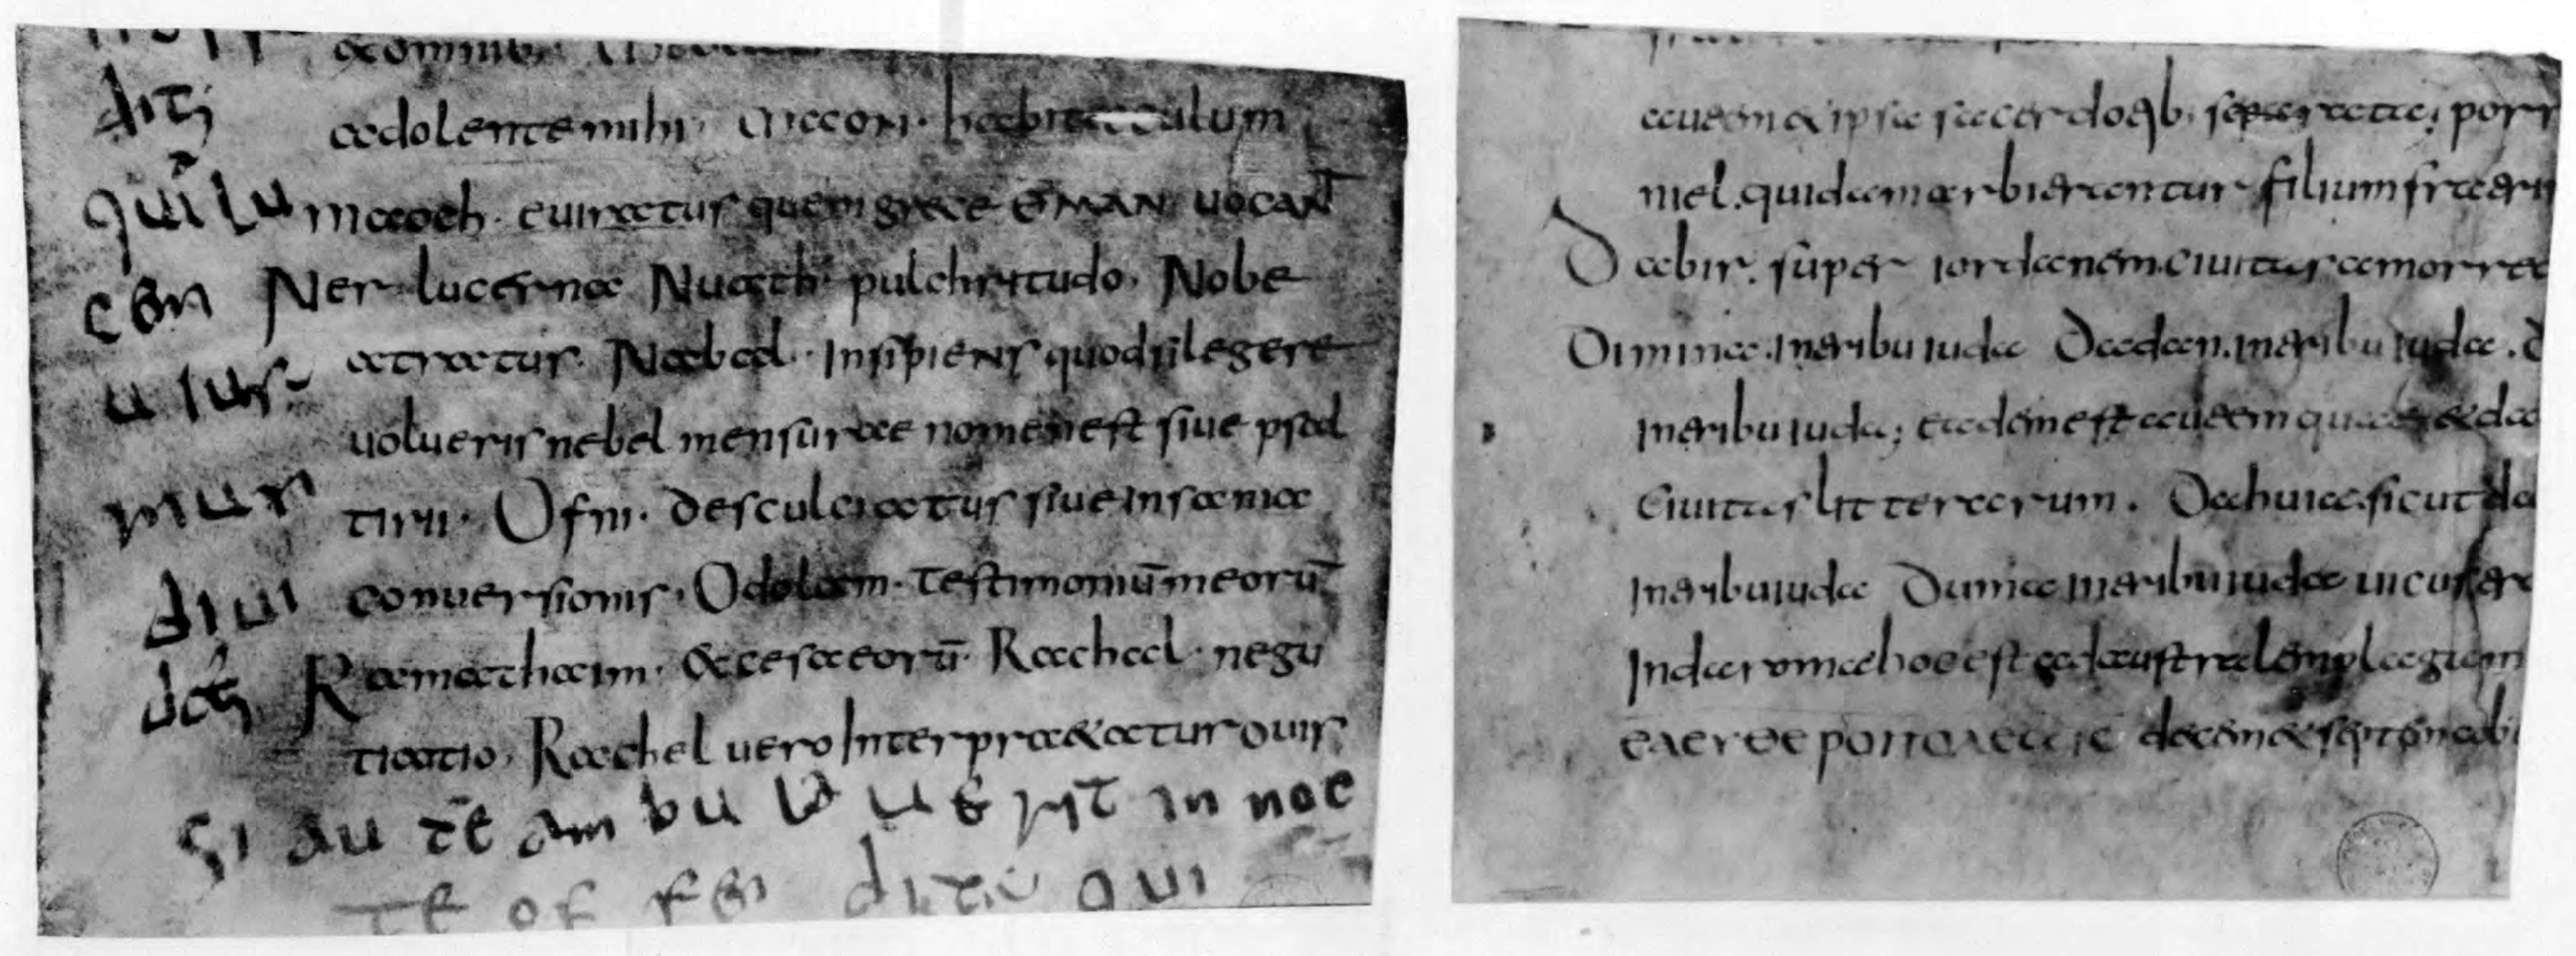 diti
adolente mihi. Maon. habitaculum
quilu
maaoch. euiratus quem grece EMAN uocant
cen
Ner lucerna Nuath pulchritudo. Nobe
atratus. Nabal. Insipiens quod si legere
uius
uolueris nebel mensurae nomen est siue psal
mur
tirii. Ofni. desculciatus siue insania
diui
conuersionis. Odolam. testimoniū meorū
Ramathaim. excesa eorū. Rachal. negu
tiatio. Rachel uero Interpraetatur ouis
Si au tē am bu la u er it in noc
te of fen dit qui
autem & ipsa sacerdotib; separata; porr
niel. quidam arbitrantur filium fratris
Dabir. super iordanem. ciuitas amorre
Dimina. In tribu iuda Dadan. In tribu iudae.
In tribu iuda; eadem est autem quae & da
Ciuitas litterarum. Dahuia. sicut
In tribu iuda Duma In tribu iudae uicus
In daroma hoc est ad australem plagam
decem & septem